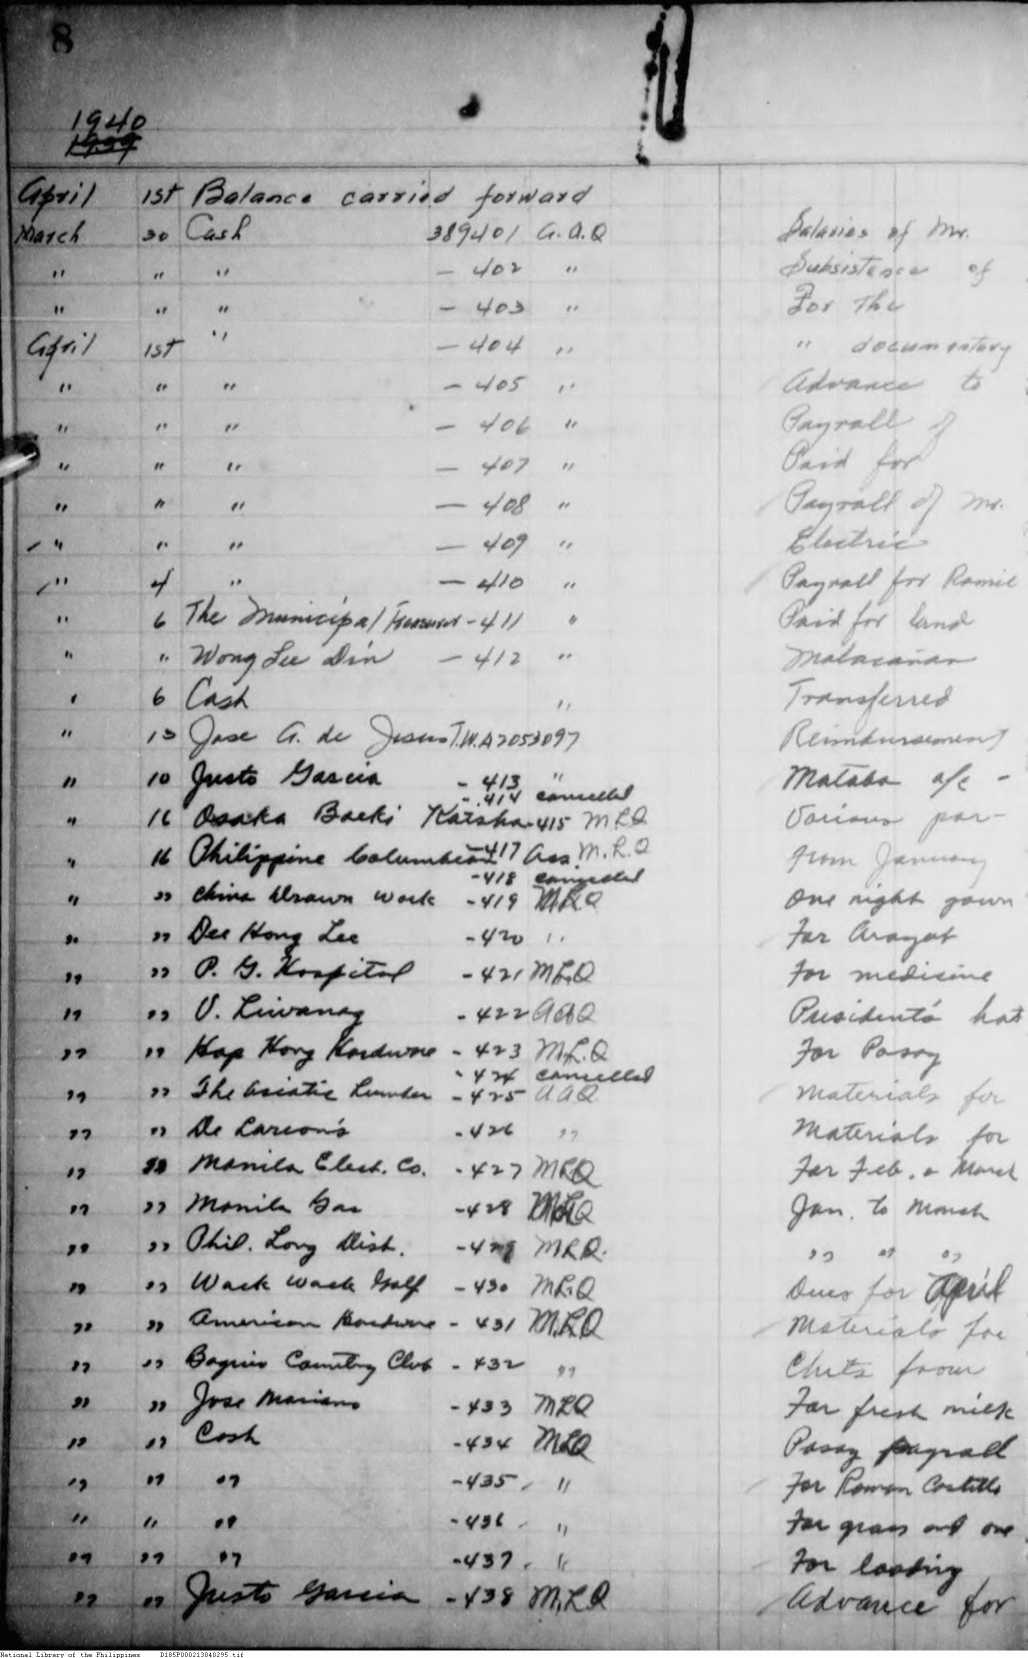 8
1940
1939
April 1st Balance carried forward
March 30 Cash 389401 A.A.Q Salaries of Mr.
" " " - 402 " Subsistence of
" " " - 403 " For the
April 1st " - 404 " " documentary
" " " - 405 " Advance to
" " " - 406 " Payroll of
" " " - 407 " Paid for
" " " - 408 " Payroll of Mr.
" " " - 409 " Electric
" 4 " - 410 " Payroll for
" 6 The Municipal Treasurer - 411 " Paid for land
" " Wong Lee Din - 412 " Malacañan
" 6 Cash " Transferred
" 13 Jose A. de Jesus T.W.A2053097 Reimbursement
" 10 Justo Garcia - 413 " Matabo a/c -
- 414 cancelled
" 16 Osaka Boeki Kaisha - 415 MLQ Various par-
" 16 Philippine Columbian - 417 Ass. M.L.Q from January
- 418 cancelled
" " China Drawn Work - 419 MLQ One night gown
" " Dee Hong Lee - 420 " For Arayat
" " P. G. Hospital - 421 MLQ For medicine
" " V. Liwanag - 422 AAQ President's hat
" " Hap Hong Hardware - 423 M.L.Q For Pasay
- 424 cancelled
" " The Asiatic Lumber - 425 AAQ Materials for
" " De Larson's - 426 " Materials for
" " Manila Elect. Co. - 427 MLQ For Feb. & March
" " Manila Gas - 428 MLQ Jan. to March
" " Phil. Long Dist. - 429 MLQ. " " "
" " Wack Wack Golf - 430 MLQ Dues for April
" " American Hardware - 431 M.L.Q Materials for
" " Baguio Country Club - 432 " Chits from
" " Jose Mariano - 433 MLQ For fresh milk
" " Cash - 434 MLQ Pasay payroll
" " " - 435 " For Roman Costillo
" " " - 436 " For grass and one
" " " - 437 " For loading
" " Justo Garcia - 438 M.L.Q Advance for
National Library of the Philippines D185P000213040295.tif